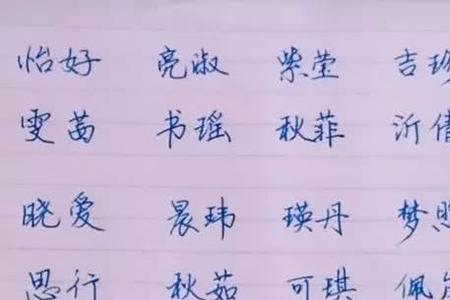 怡好 亮淑 紫莹 吉珍
雯茜 书瑶 秋菲 沂倩
晓爱 晨玮 瑛丹 梦
思行 秋茹 可琪 佩